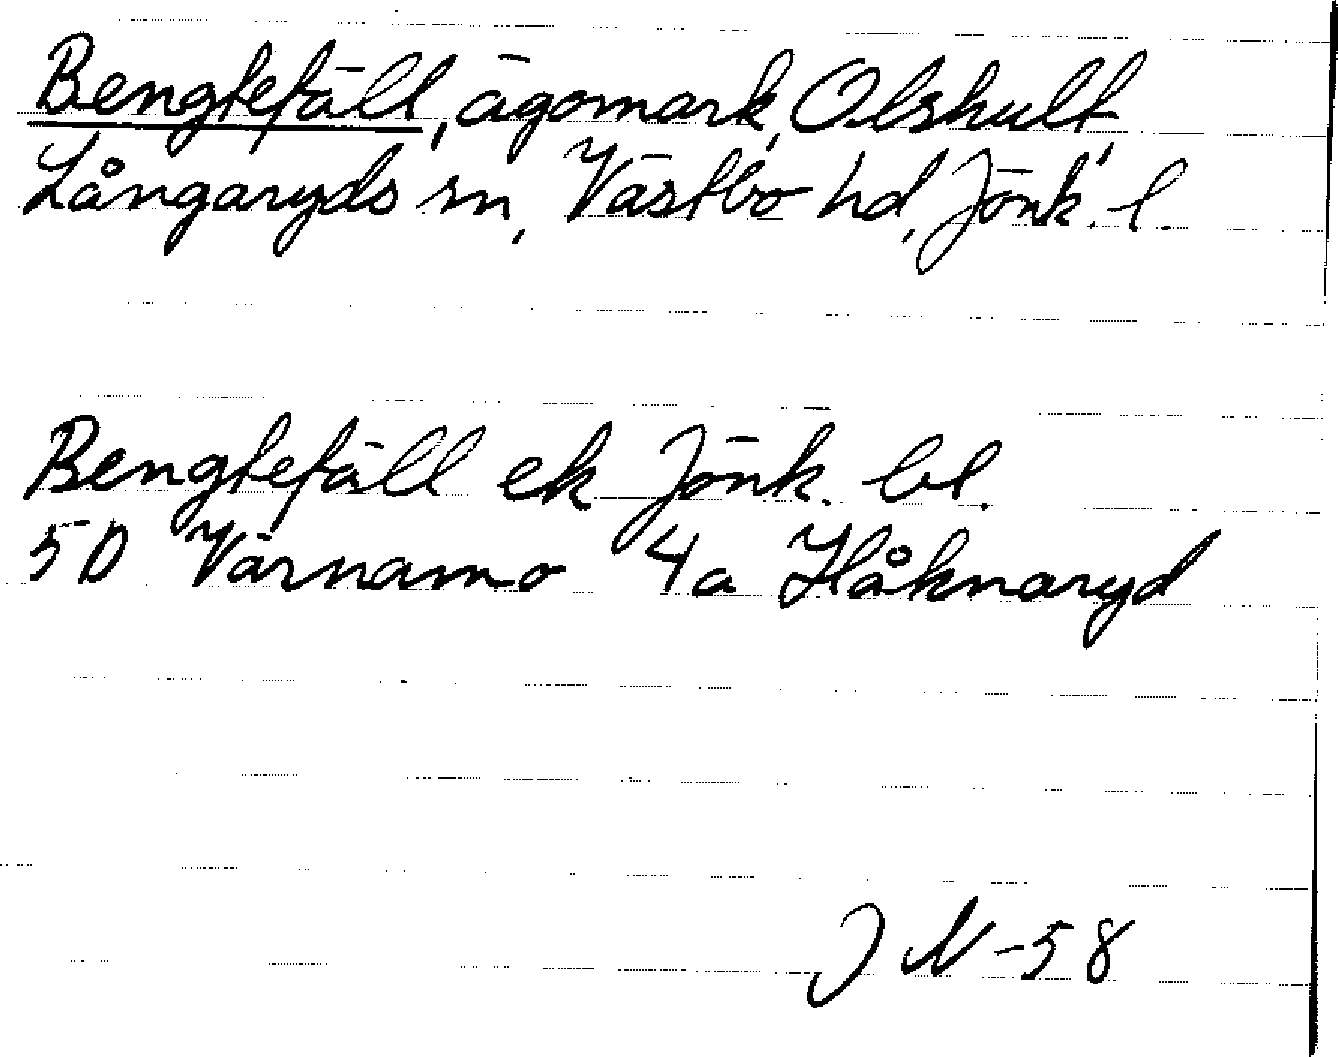 Bengtefäll, ägomark, Olshult,
Långaryds sn, Västbo hd, Jönk. l.
Bengtefäll ek Jönk. bl.
5D Värnamo 4a Håknaryd
J N -58